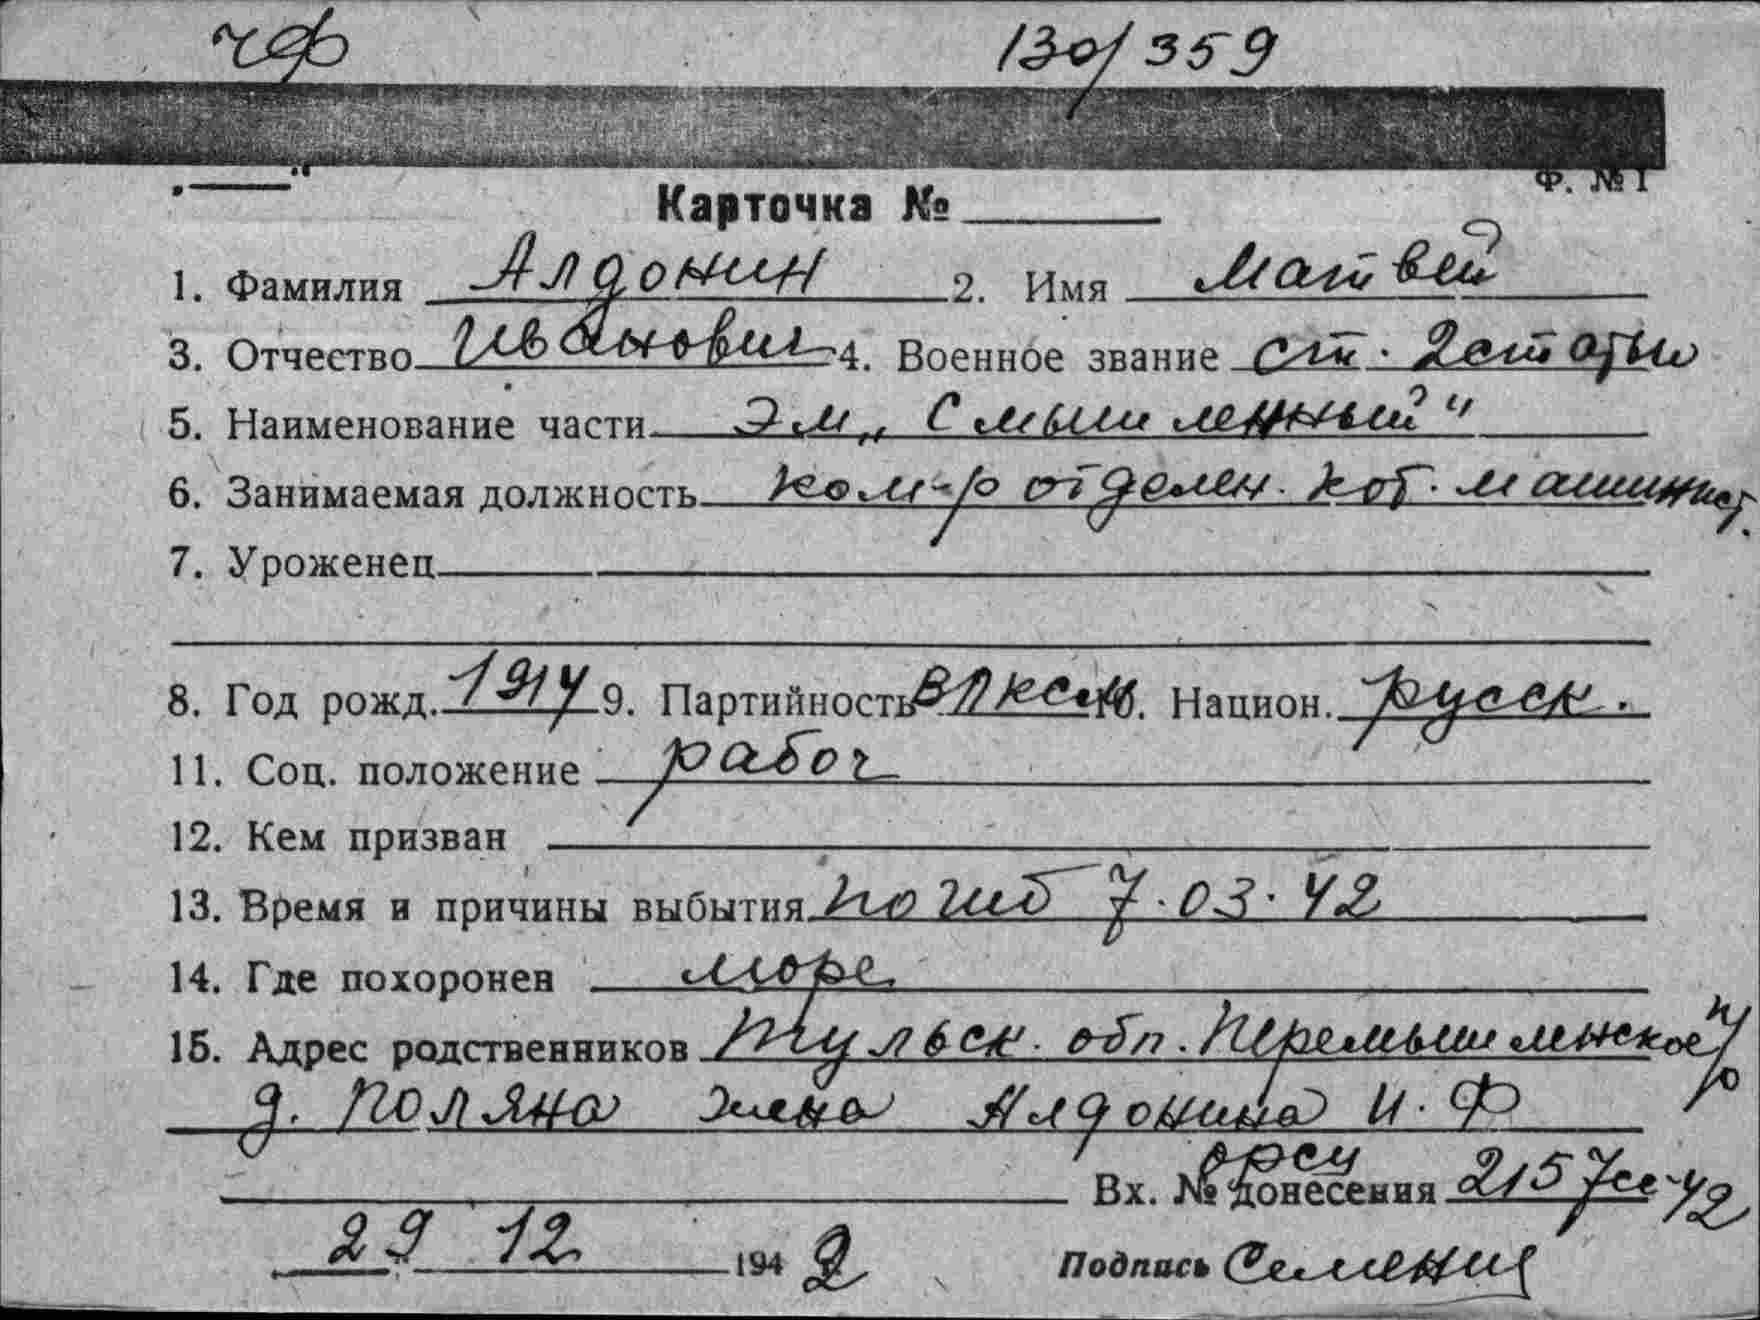 ЧФ 130/359
Ф. № 1
Карточка №
1. Фамилия Алдонин 2. Имя Матвей
3. Отчество Иванович 4. Военное звание ст. 2 статьи
5. Наименование части Эм „Смышленный"
6. Занимаемая должность ком-р отделен. кот. машинист.
7. Уроженец
8. Год рожд. 1914 9. Партийность ВЛКСМ 10. Национ. русск.
11. Соц. положение рабоч
12. Кем призван
13. Время и причины выбытия погиб 7.03.42
14. Где похоронен море
15. Адрес родственников Тульск. обл. Перемышленское р
д. Поляна жена Алдонина И. Ф
Вх. № донесения 2157сс-42
29 12 1942 Подпись